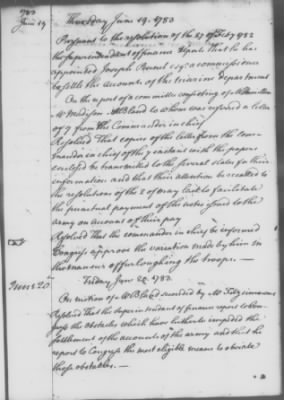 1783
June 19
Thursday June 19. 1783
Pursuant to the resolution of the 27 of 1782
the superintendent of finance reports That he has
appointed Joseph Pennel esqr a commissioner
to settle the accounts of the marine department
On the report of a committee consisting of Mr Hamilton
Mr Madison Mr Bland to whom was referred a letter
of 7 from the Commander in chief
Resolved That copies of the letter from the com-
mander in chief of the 7 instant with the papers
enclosed be transmitted to the several states for their
information and that their attention be recalled to
the resolutions of the 2 of May last to facilitate
the punctual payment of the notes issued to the
army on account of their pay
Resolved that the commander in chief be informed
Congress approve the variation made by him in
the manner of furloughing the troops. —
June 20
Friday June 20. 1783.
On motion of Mr Bland seconded by Mr Fitzsimmons
Resolved that the superintendant of finance report to Con-
gress the obstacles which have hitherto impeded the
settlement of the accounts of the army and that he
report to Congress the most eligible means to obviate
those obstacles. —